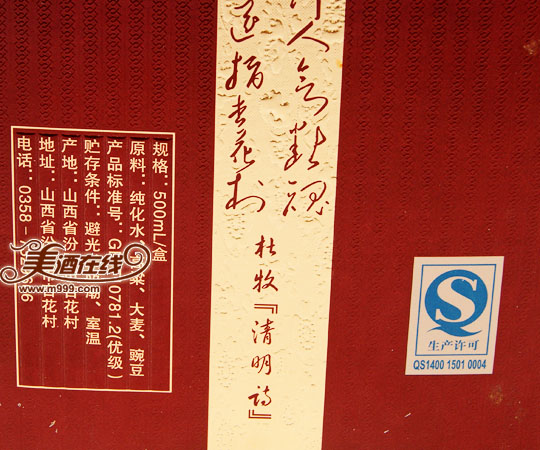 行人欲断魂
遥指杏花村
杜牧『清明诗』
规格：500mL/盒
原料：纯化水、高粱、大麦、豌豆
产品标准号：G 0781.2(优级)
贮存条件：避光 潮、室温
产地：山西省汾 杏花村
地址：山西省汾 杏花村
电话：0358-
美酒在线
www.m999.com
S
生产许可
QS1400 1501 0004